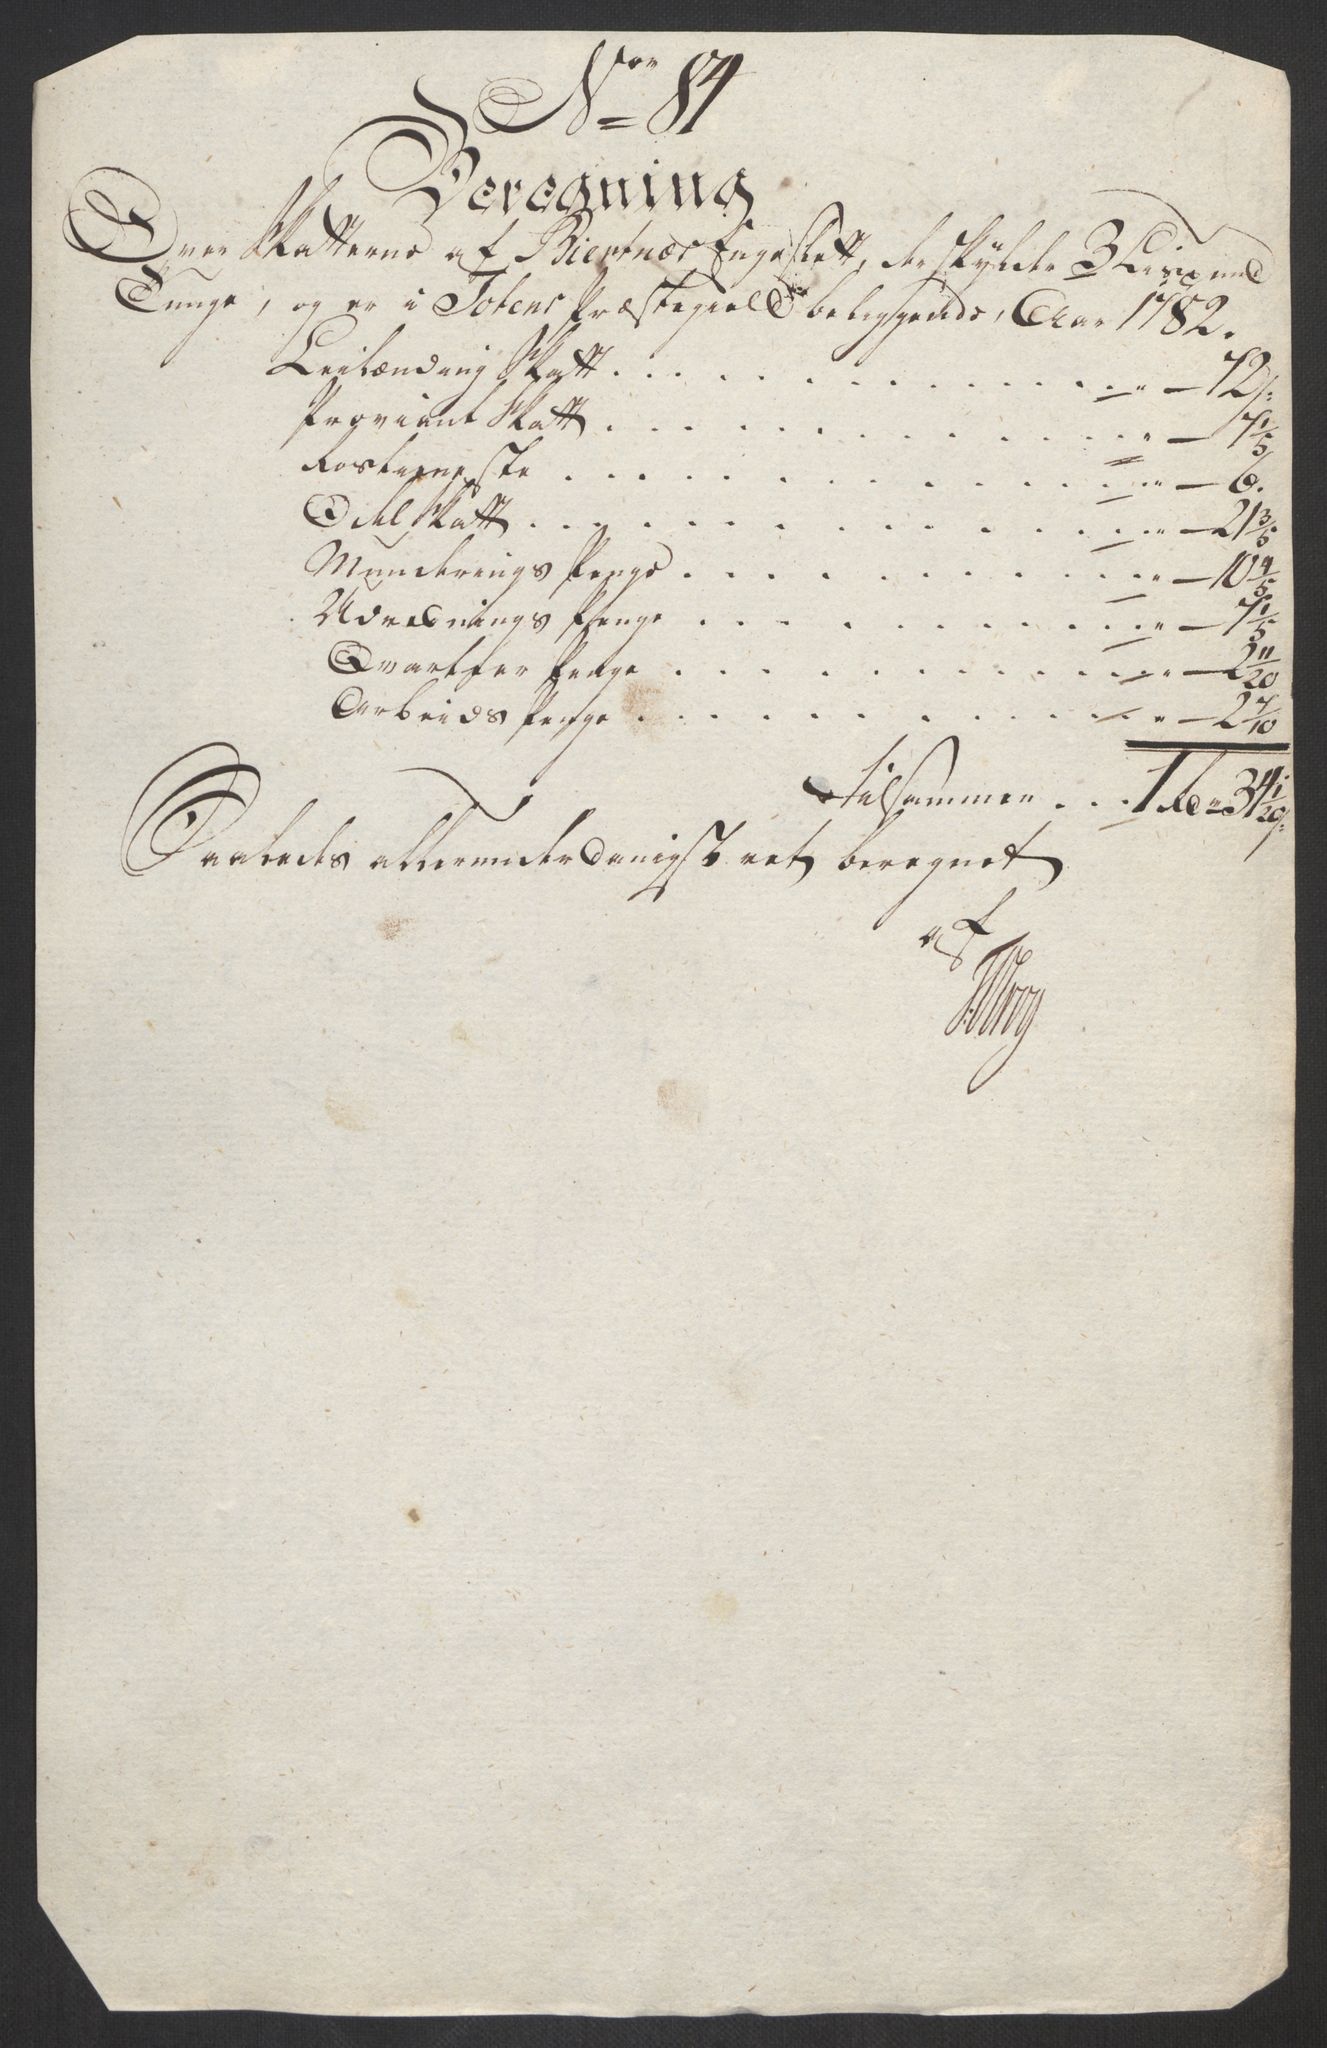 No 84
Beregning
Over Skatterne af Biertnæs Engeslett, der skylder 3 Lispund
Tunge, og er i Totens Præstegield beliggende, Aar 1782.
Leilænding Skatt . . . . . . . . . . . . . " — 72 s:
Proviant Skatt . . . . . . . . . . . . . " — 7 1/5
Rostieneste . . . . . . . . . . . . . " — 6.
Odel Skatt . . . . . . . . . . . . . " — 21 3/5
Munderings Penge . . . . . . . . . . . " — 10 4/5
Udrednings Penge . . . . . . . . . . . " — 7 1/5
Qvarteer Penge . . . . . . . . . . . " — 2 11/20
Arbeids Penge . . . . . . . . . . . " — 2 7/10
tilsammen . . . 1 Rdr 34 1/20 s:
Saaledes allerunderdanigst ret beregnet
af